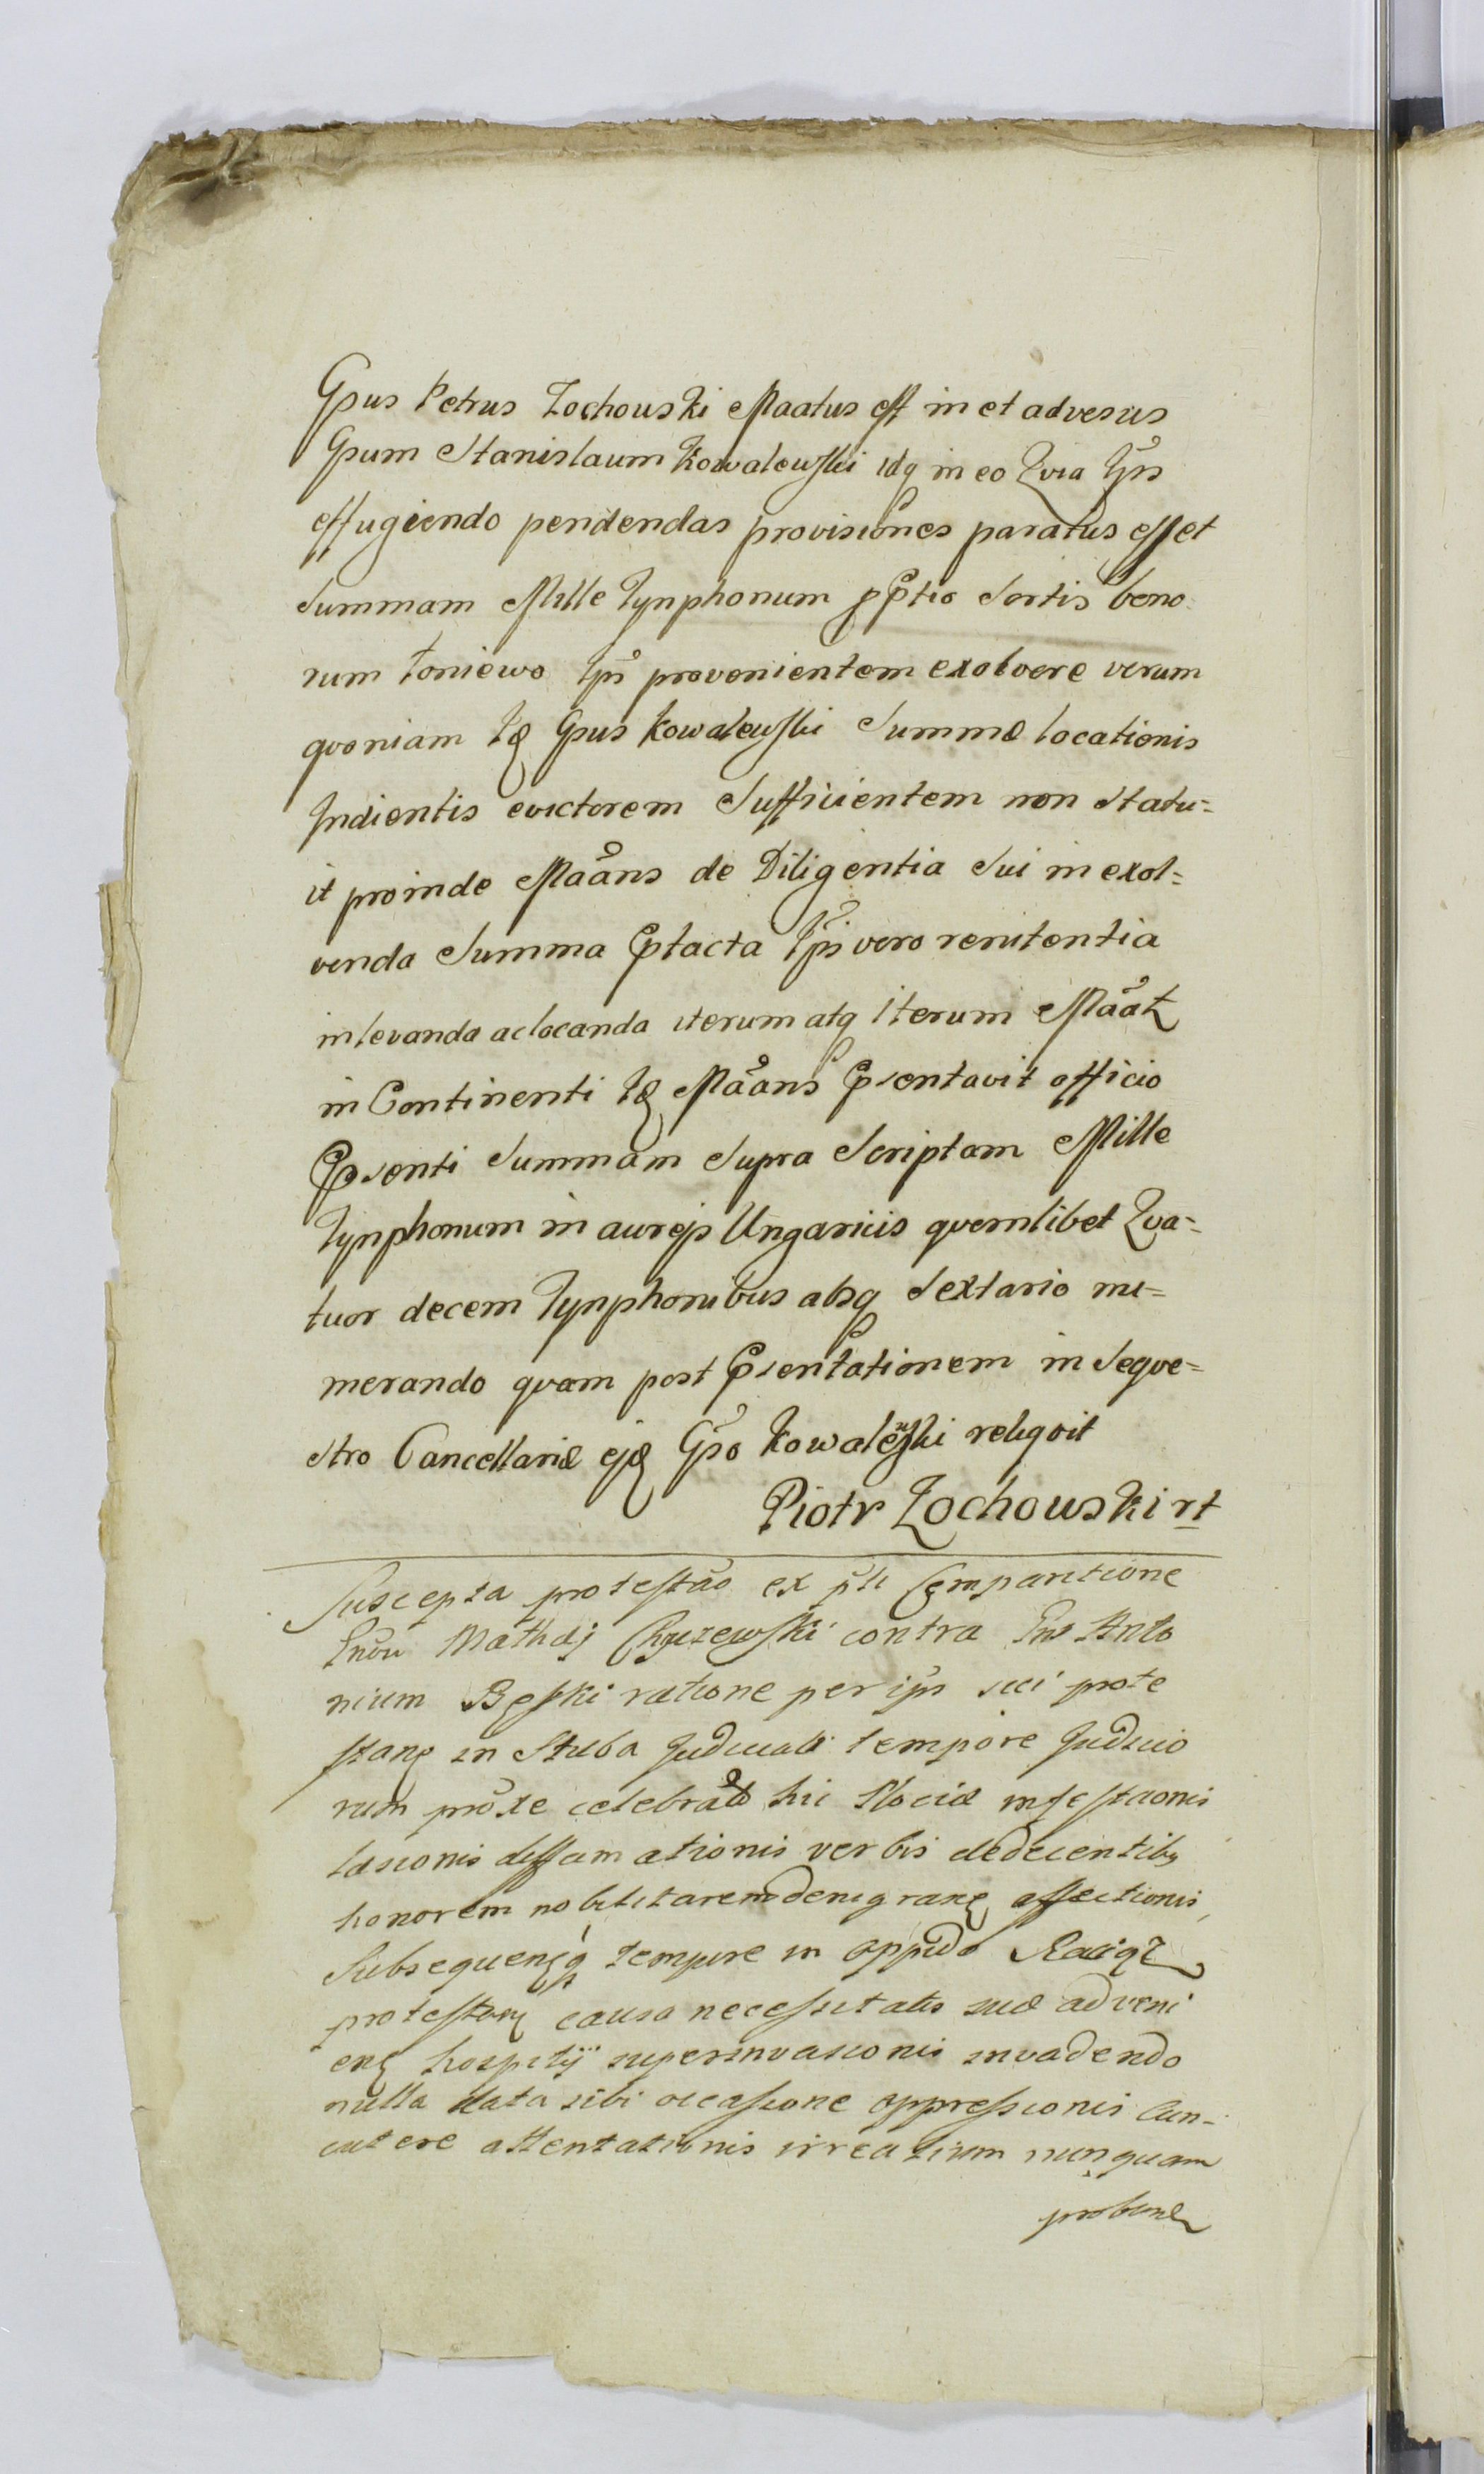 Gsus Petrus Zochouski Maatus est in et advesus
Gsum Stanislaum Kowalewski idq in eo Qvia Ips
effugiendo pendendas provisiones paratus esset
Summam Mille Tynphonum p Ptio Sortis bono
rum Łoniewo Ipi provenientem exolvere verum
qvoniam Id Gsus Kowalewski Summæ locationis
Indientis evictorem Sufficientem non Statu=
it proinde Maans de Diligentia Sui in exol=
venda Summa Ptacta Ipi vero renitentia
in levanda ac locanda iterum atq iterum Maat
in Continenti Id Maans Psentavit officio
Psenti Summam Supra Scriptam Mille
Tynphonum in aureis Ungaricis qvemlibet Qva=
tuor decem Tynphonibus absq Sextario nu=
merando qvam post Psentationem in Seqve=
stro Cancellariæ ejd Gso Kowalewski religvit
Piotr Zochouski rt
Suscepta protestao ex pti Comparitione
Gnou Mathæi Chyczewski contra Gnd Anto
nium Bęski ratione per ips sui prote
stane in Stuba Judiciali tempore Judicio
rum proxe celebrato hic Plociæ infestaonis
lasionis diffamationis verbis dedecentibq
honorem nobilitarem denigrane affectionis
Subsequeneq tempore in oppido Raciąż
protestane causa necessitatis suæ adveni
ene hospitij superinvasionis invadendo
nulla data sibi occasione oppressionis cun-
cutere attentationis irreatium nunquam